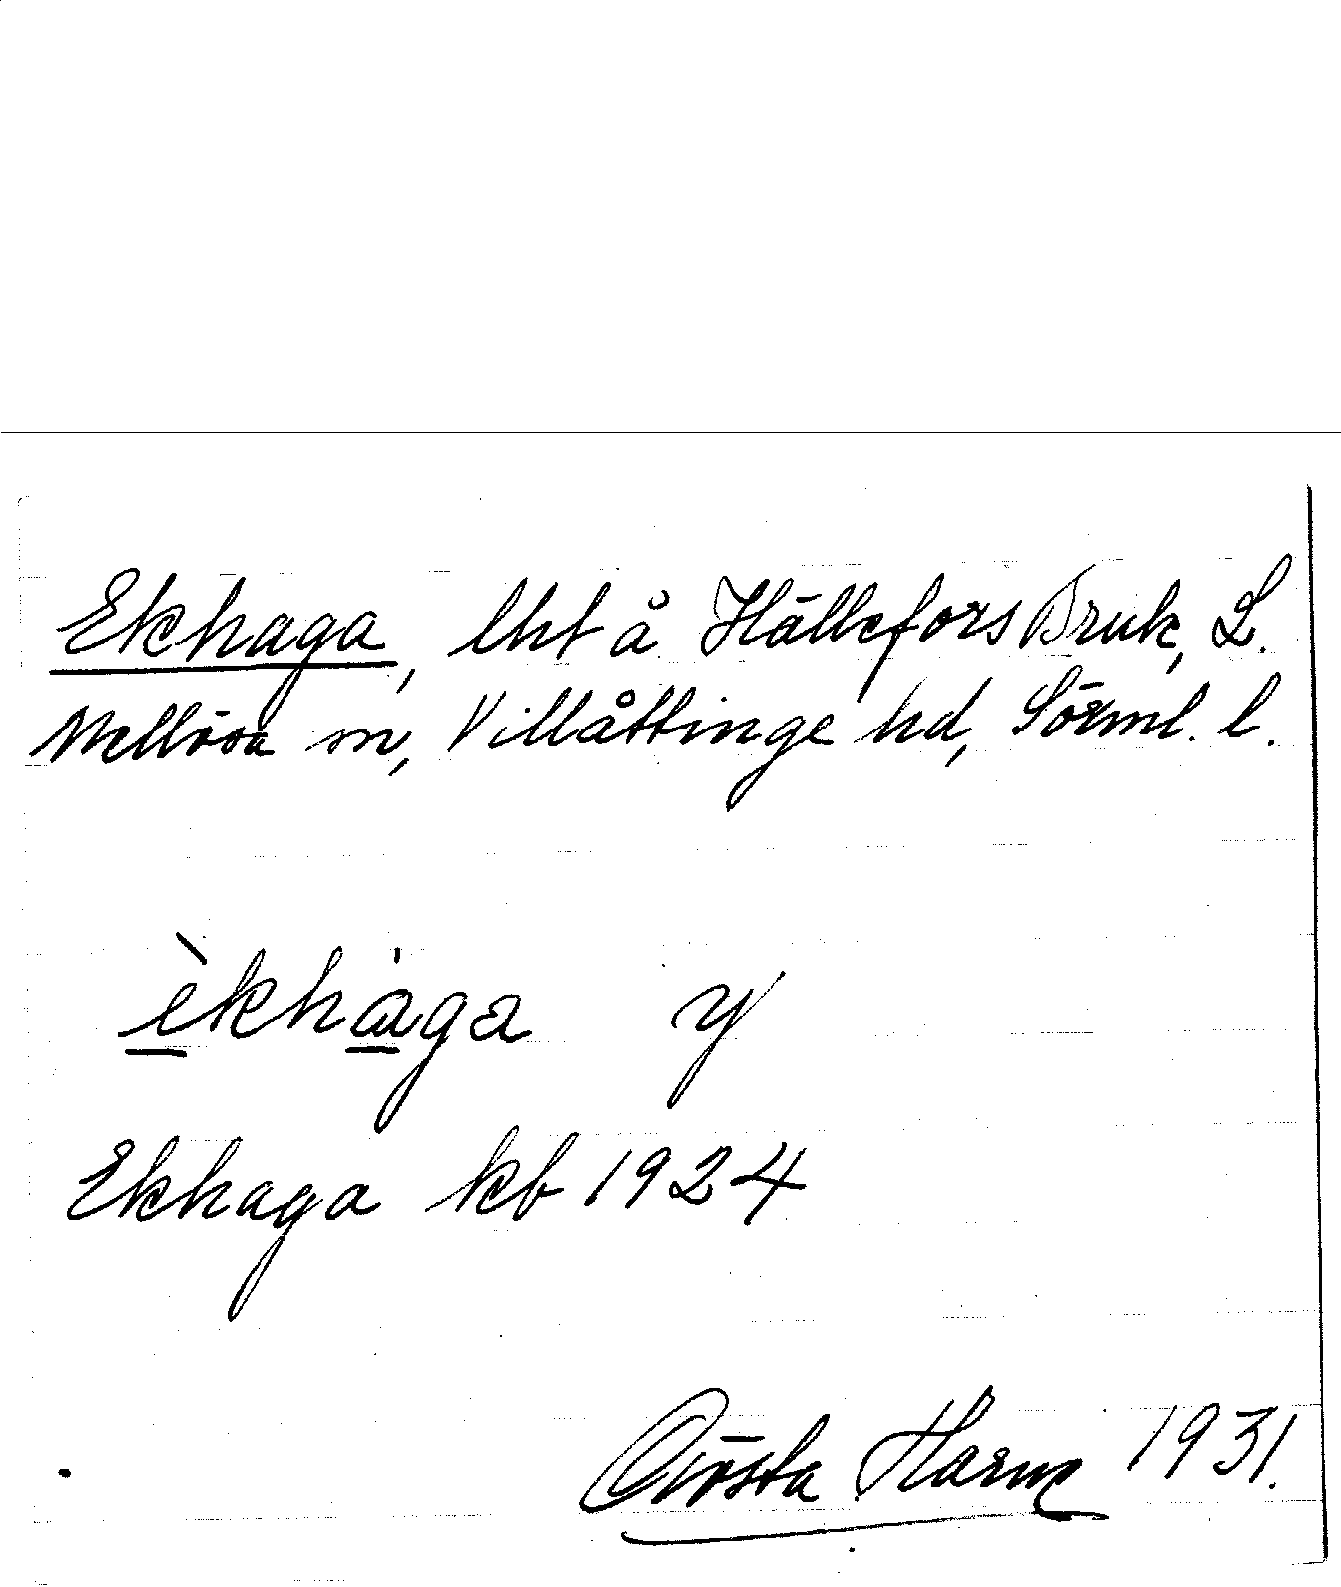 Ekhaga, lht å Hällefors Bruk, L.
Mellösa sn, Villåttinge hd, Sörml. l.
èkhàga y
Ekhaga kb 1924
Gösta Harne 1931.